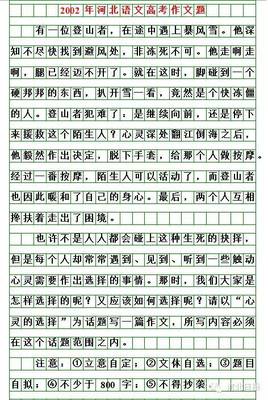 2002年河北语文高考作文题
有一位登山者，在途中遇上暴风雪。他深
知不尽快找到避风处，非冻死不可。他走啊走
啊，腿已经迈不开了。就在这时，脚碰到一个
硬邦邦的东西，扒开雪一看，竟然是个快冻僵
的人。登山者犯难了：是继续向前，还是停下
来援救这个陌生人？心灵深处翻江倒海之后，
他毅然作出决定，脱下手套，给那个人做按摩。
经过一番按摩，陌生人可以活动了，而登山者
也因此暖和了自己的身心。最后，两个人互相
搀扶着走出了困境。
也许不是人人都会碰上这种生死的抉择，
但是每个人却常常遇到、见到、听到一些触动
心灵需要作出选择的事情。那时，我们大家是
怎样选择的呢？又应该如何选择呢？请以“心
灵的选择”为话题写一篇作文，所写内容必须
在这个话题范围之内。
注意：①立意自定；②文体自选；③题目
自拟；④不少于800字；⑤不得抄袭